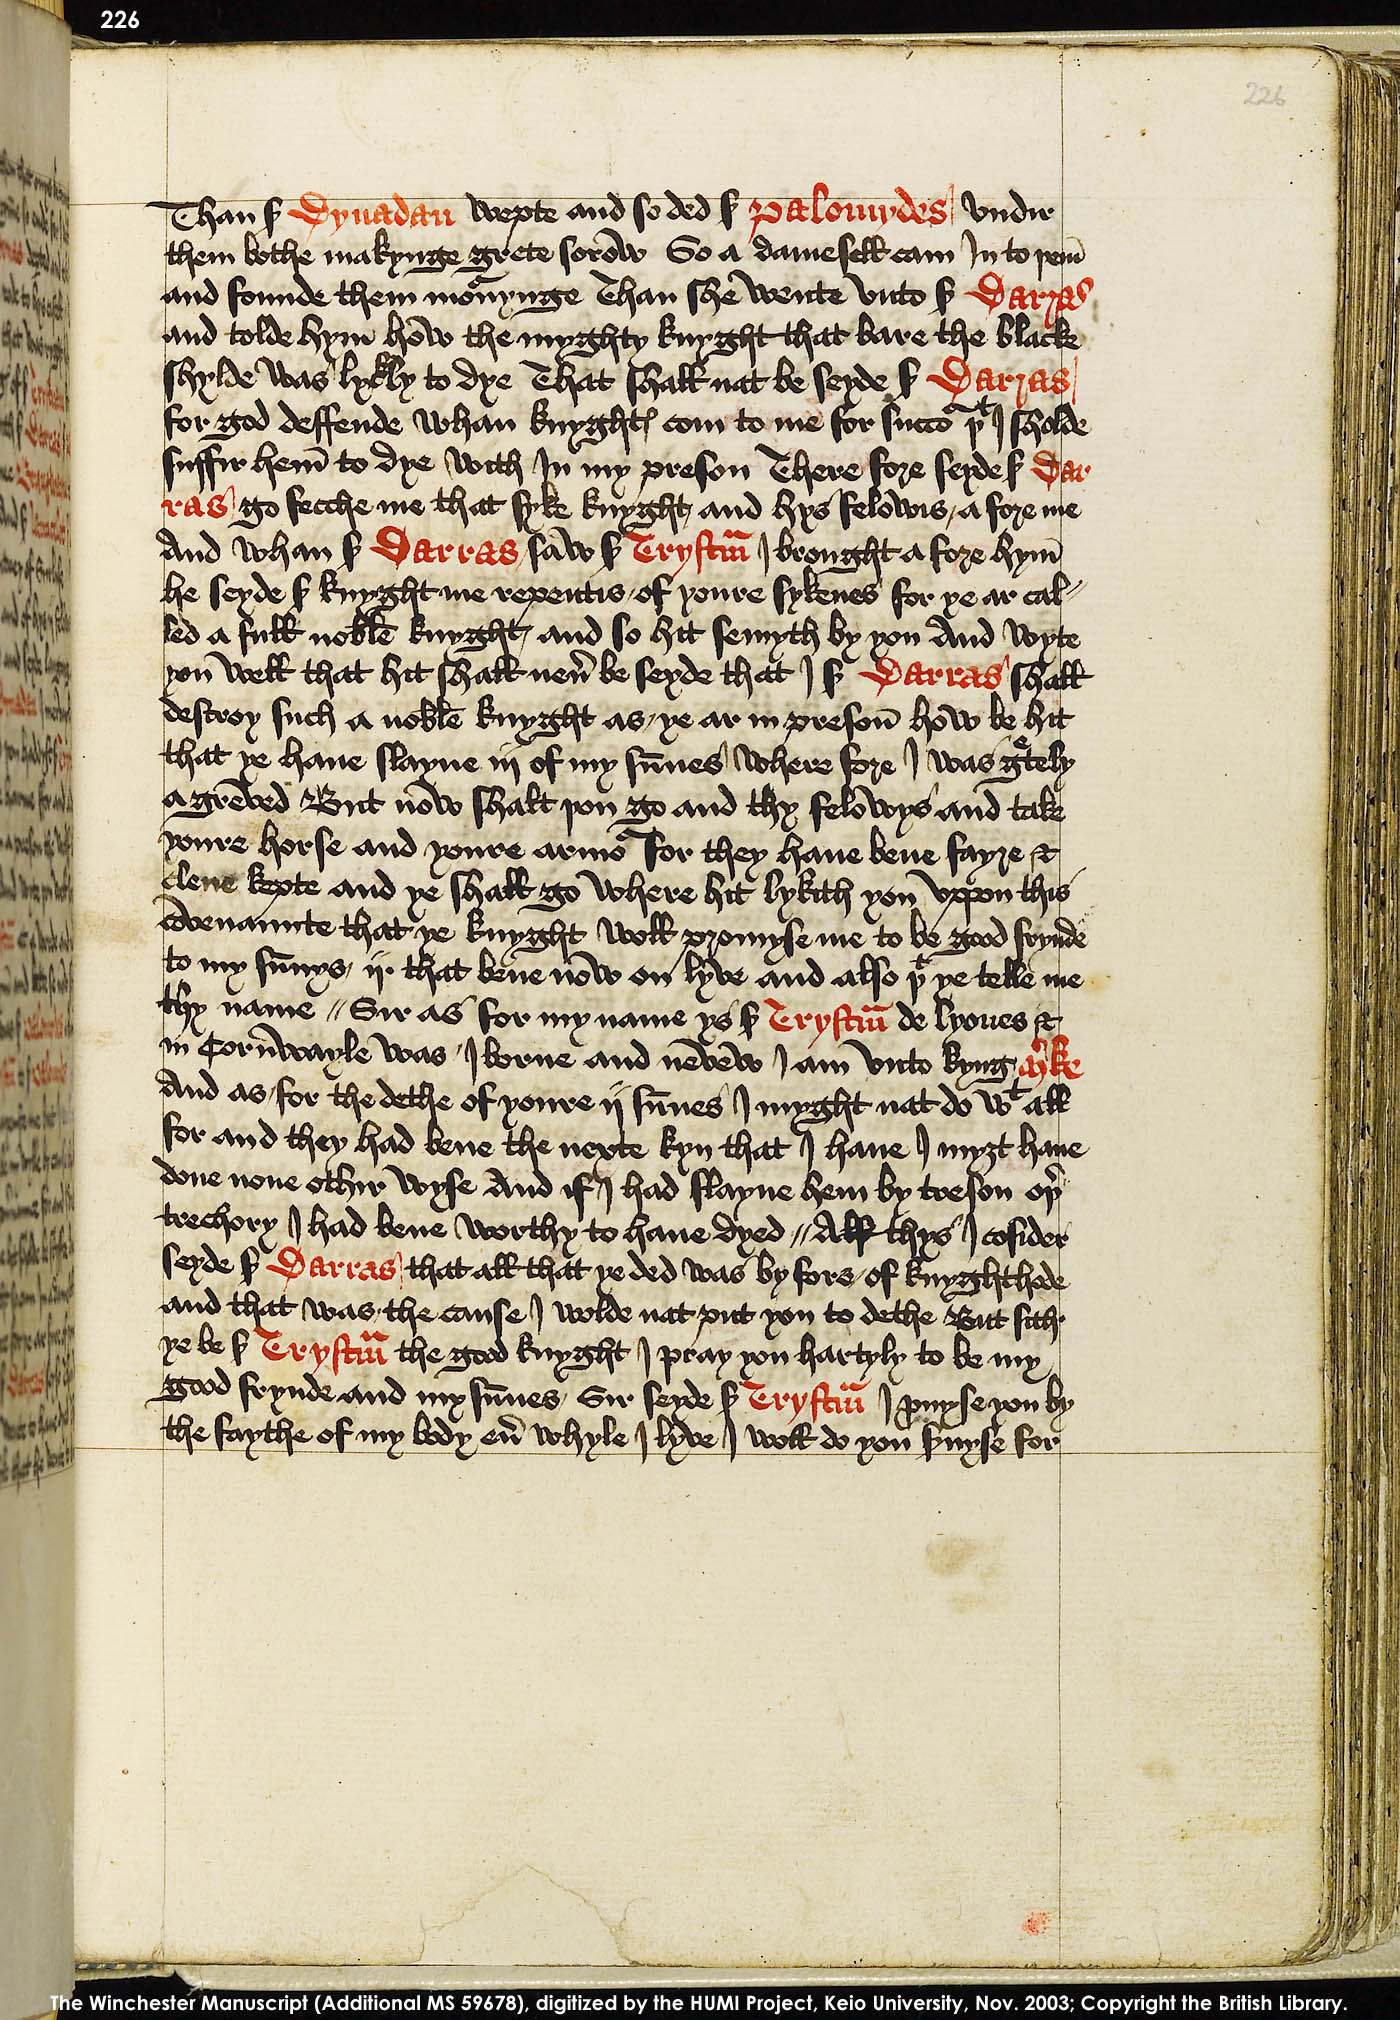 226
226
Than sʳ Dynadan wepte and so ded sʳ Palomydes vndir
them bothe makynge grete sorow So a damesell cam In to þem̄
and founde them moʳnynge Than she wente vnto sʳ Darras
and tolde hym̄ how the myghty knyght that bare the blacke
shylde was lykly to dye That shall nat be seyde sʳ Darras
for god deffende whan knyghtꝭ com to me for succoʳ þᵗ I sholde
suffir hem̄ to dye with In my preson There fore seyde sʳ Dar
ras go fecche me that syke knyght and hys felowis a fore me
And whan sʳ Darras saw sʳ Trystrām I brought a fore hym̄
he seyde sʳ knyght me repentis of youre sykenes for ye ar cal〃
led a full noble knyght and so hit semyth by you And wyte
you well that hit shall neuͬ be seyde that I sʳ Darras shall
destroy such a noble knyght as ye ar in preson̄ how be hit
that ye haue slayne iij of my sūnes where fore I was gᵉtely
a greved But now shalt þou go and thy felowys and take
youre horse and youre armoʳ For they haue bene fayre &
clene kepte and ye shall go where hit lykith you vppon this
covenaunte that ye knyght woll promyse me to be good frynde
to my sūnys ij. that bene now on lyve and also þᵗ ye telle me
thy name // Sir as for my name ys sʳ Trystrām de lyones &
in Cornwayle was I borne and nevew I am vnto kyng Mʳke
And as for the dethe of youre ij sūnes I myght nat do wᵗ all
for and they had bene the nexte kyn that I haue I myȝt haue
done none othir wyse And if I had slayne hem by treson oþͬ
trechory I had bene worthy to haue dyed // All thys I cōsider
seyde sʳ Darras that all that ye ded was by fors of knyghthode
and that was the cause I wolde nat put you to dethe But sith
ye be sʳ Trystrām the good knyght I pray you hartyly to be my
good frynde and my sūnes Sir seyde sʳ Trystrām I ꝓmyse you by
the faythe of my body euͬ whyle I lyve I woll do you sͬuyse for
The Winchester Manuscript (Additional MS 59678), digitized by the HUMI Project, Keio University, Nov. 2003; Copyright the British Library.